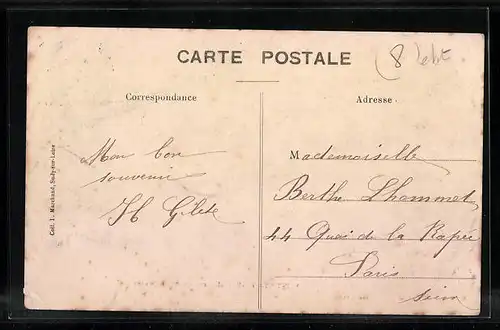 CARTE POSTALE
Correspondance
Adresse
Mon bon
souvenir
Mademoiselle
Berthe Lhommet
44 Quai de la Rapée
Paris
Seine
Coll. L. Marchand, Sully-sur-Loire